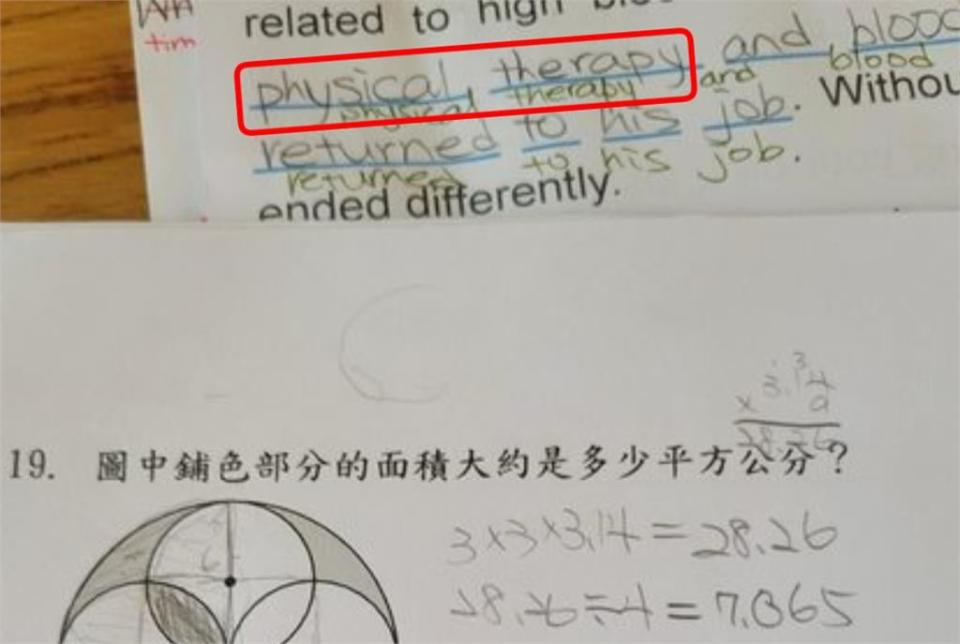 tim
related to high
physical therapy and blood
physical therapy and blood
returned to his job. Withou
returned to his job.
ended differently.
3.14
× 9
28.26
19. 圖中鋪色部分的面積大約是多少平方公分？
3×3×3.14=28.26
28.26÷4=7.065
6